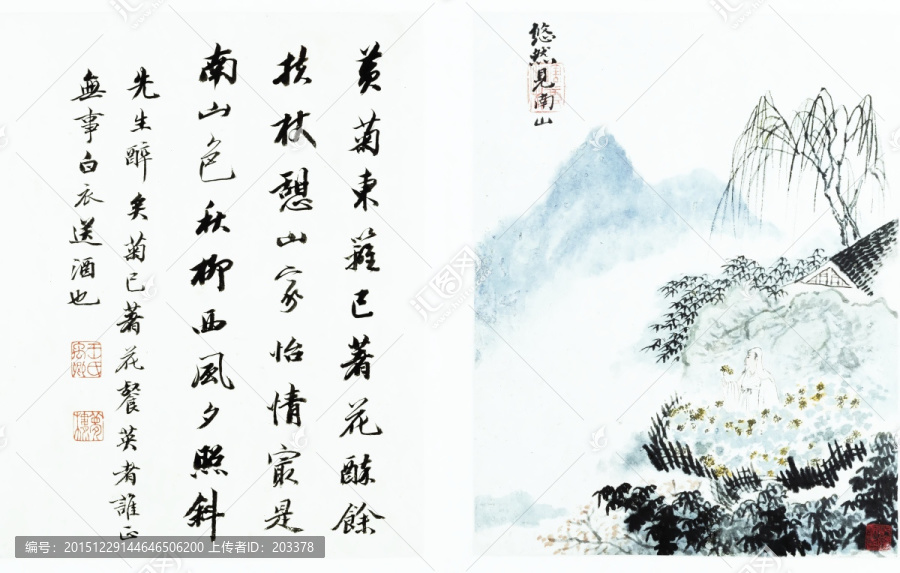 悠然見南山
黃菊東籬已著花酥餘
扶杖憩山家怡情最是
南山色秋柳西風夕照斜
先生醉矣菊已著花餐英者誰正
無事白衣送酒也
编号：20151229144646506200 上传者ID：203378